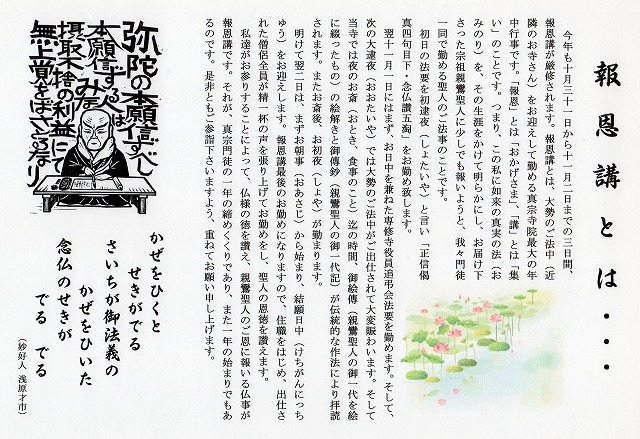 報恩講とは・・・
今年も十月三十一日から十一月二日までの三日間、
報恩講が厳修されます。報恩講とは、大勢のご法中(近
隣のお寺さん)をお迎えして勤める真宗寺院最大の年
中行事です。「報恩」とは「おかげさま」、「講」とは「集
い」のことです。つまり、この私に如来の真実の法(お
みのり)を、その生涯をかけて明らかにし、お届け下
さった宗祖親鸞聖人に少しでも報いようと、我々門徒
一同で勤める聖人のご法事のことです。
初日の法要を初逮夜(しょたいや)と言い「正信偈
真四句目下・念仏讃五淘」をお勤め致します。
翌十一月一日にはまず、お日中を兼ねた専修寺役員追弔会法要を勤めます。そして、
次の大逮夜(おおたいや)では大勢のご法中がご出仕されて大変賑わいます。そして
当寺では夜のお斎(おとき、食事のこと)迄の時間、御絵傳(親鸞聖人の御一代を絵
に綴ったもの)の絵解きと御傳鈔(親鸞聖人の御一代記)が伝統的な作法により拝読
されます。またお斎後、お初夜(しょや)が勤まります。
明けて翌二日は、まずお朝事(おあさじ)から始まり、結願日中(けちがんにっち
ゅう)をお迎えします。報恩講最後のお勤めになりますので、住職をはじめ、出仕さ
れた僧侶全員が精一杯の声を張り上げてお勤めをし、聖人の恩徳を讃えます。
私達がお参りすることによって、仏様の徳を讃え、親鸞聖人のご恩に報いる仏事が
報恩講です。それが、真宗門徒の一年の締めくくりであり、また一年の始まりでもあ
るのです。是非ともご参詣下さいますよう、重ねてお願い申し上げます。
弥陀の本願信ずべし
本願信ずる人は
摂取不捨の利益に
無上覚をばさとるなり
かぜをひくと
せきがでる
さいちが御法義の
かぜをひいた
念仏のせきが
でる でる
(妙好人 浅原才市)